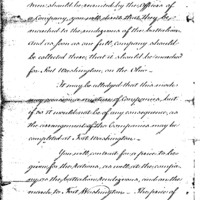 men should be recruited by the Officers of
a Company, you will direct that they be
marched to the rendezvous of the battalion
and as soon as one full company should
be collected there, that it should be marched
for Fort Washington, on the Ohio.
It may be alledged that this mode
may occasion a mixture of Companies, but
if so it would not be of any consequence, as
the arrangement of the Companies may be
completed at Fort Washington.
You will contract for a price to be
given for the rations, as well at the compa
ny as the battalion rendezvous, and on the
march to Fort Washington. The price of